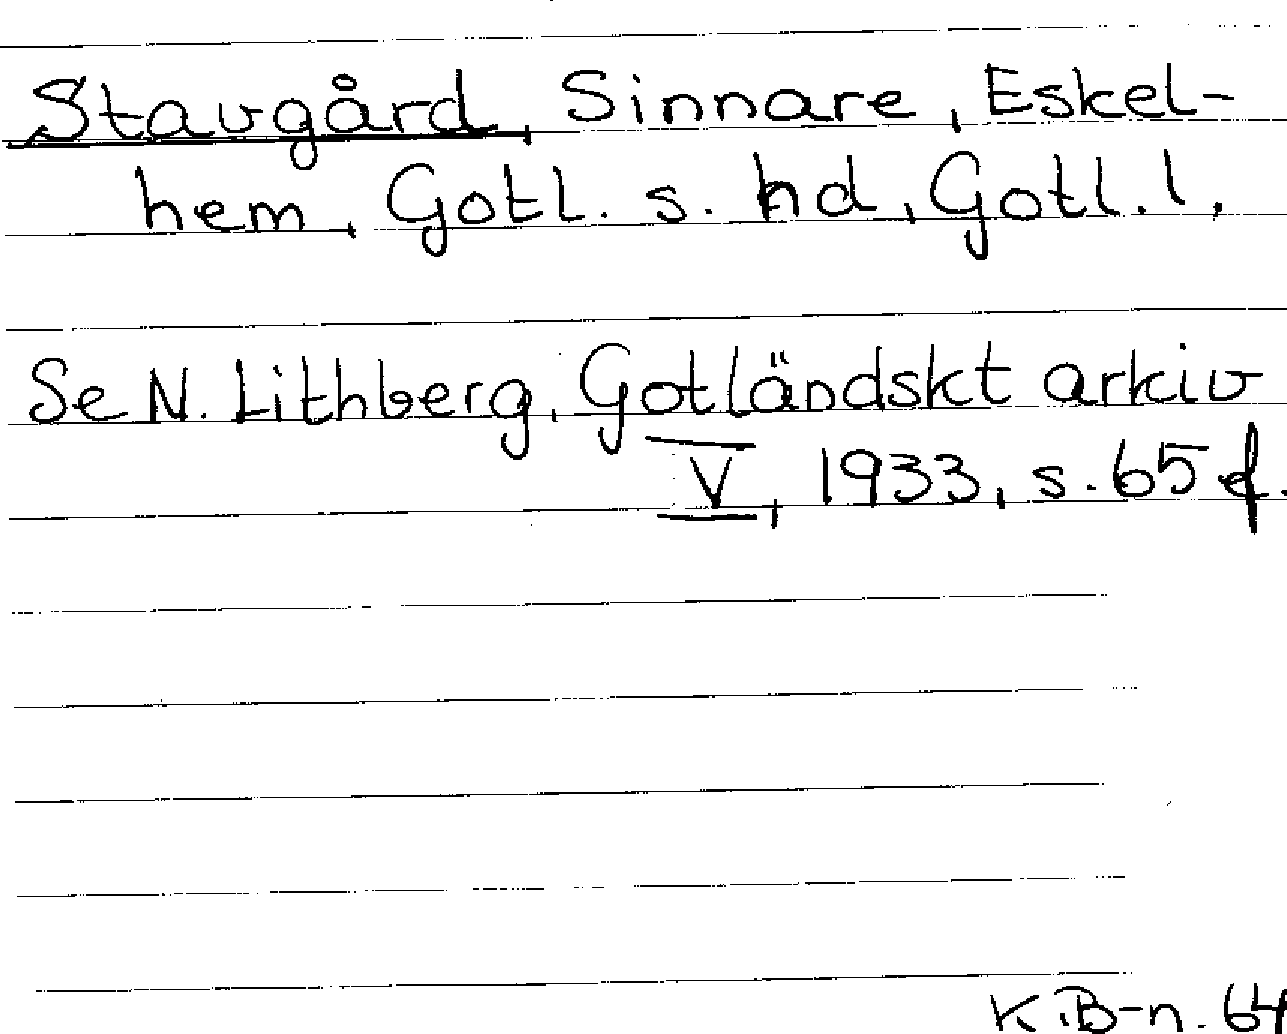 Stavgård, Sinnare, Eskel-
hem, Gotl. s. hd, Gotl. l.
Se N. Lithberg, Gotländskt arkiv
V, 1933, s. 65 f.
K.B-n. 64